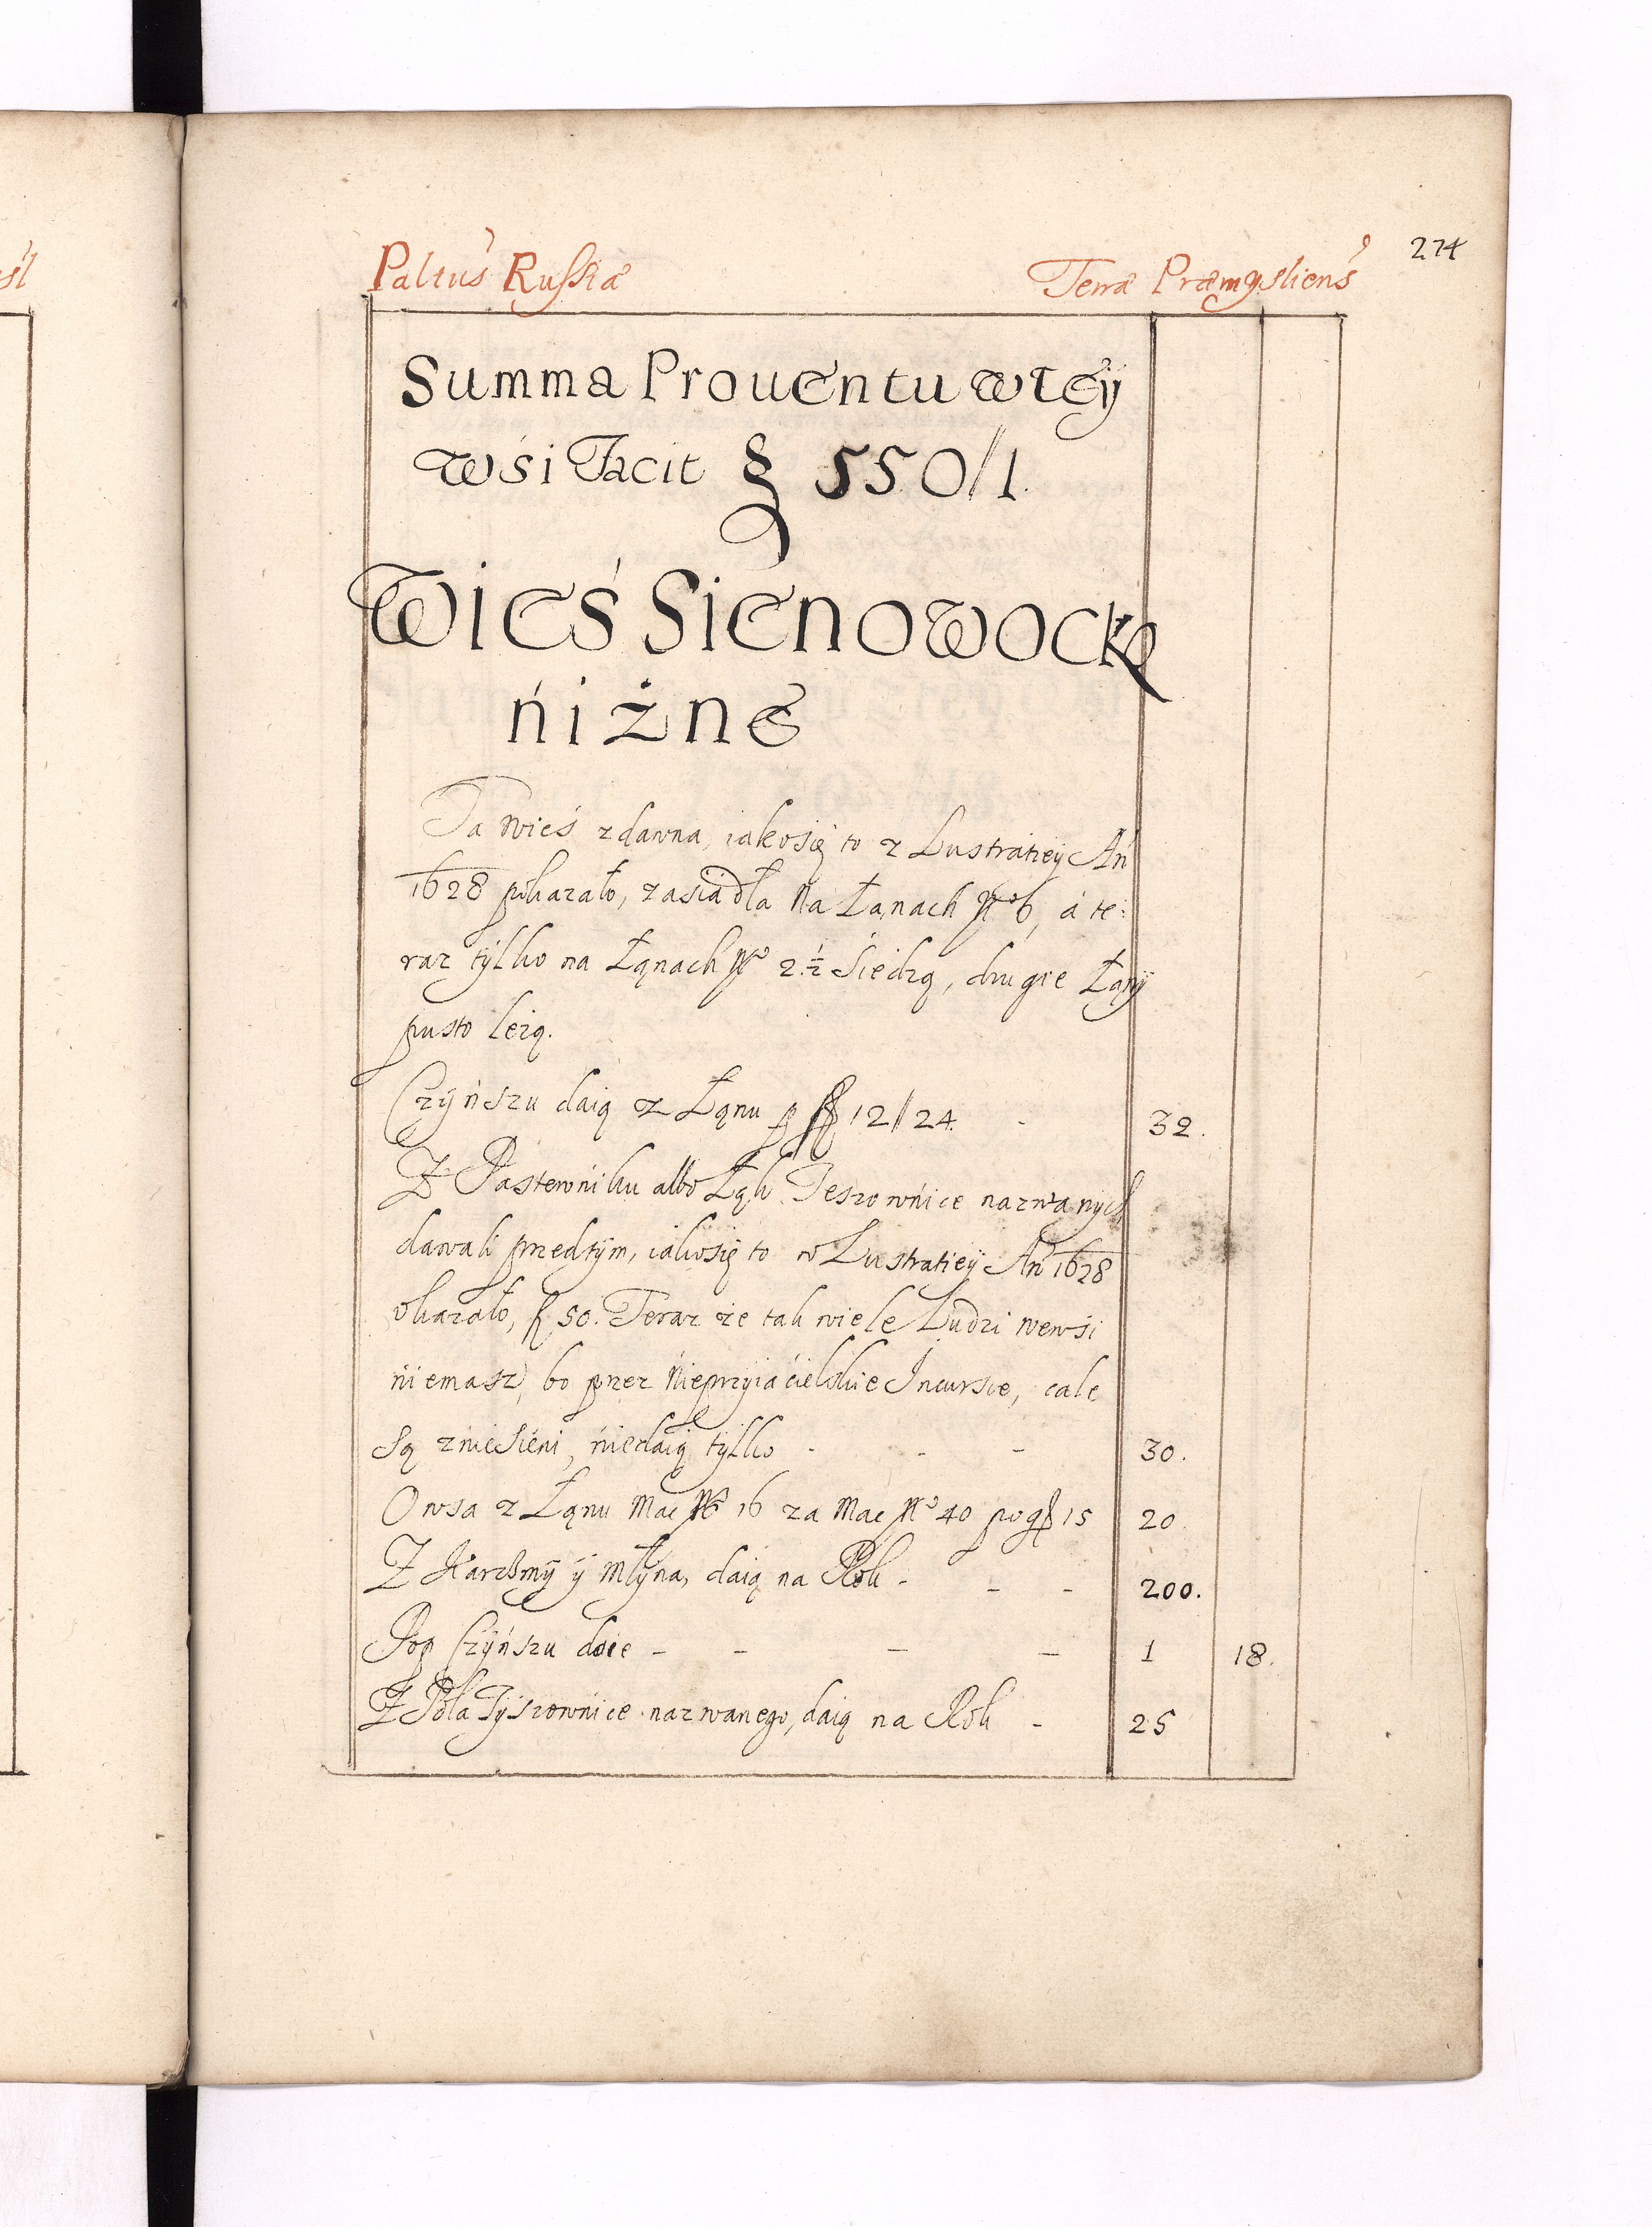 274
Paltus Russiæ Terræ Præmysliens
Summa Prouentu w tey
wśi Facit f 550//1.
Wieś Sienowock
niżne
Ta wieś zdawna, iakosię to z Lustratiey An
1628 pokazało, zasiadła na Łanach No 6, á te:
raz tylko na Łąnach No 2 1/2 Siedzą, drugie Łąny
pusto leżą.
Czÿnszu daią z Łąnu p fl 12//24. - 32.
Z Pastewniku albo Łąk Teszownice nazwanych
dawali przedtÿm, iakosię to w Lustratiey An 1628
okazało, f 50. Teraz że tak wiele Ludzi wewśi
niemasz, bo przez Nieprzÿiacielskie Incursie, cale
Są zniesieni, niedaią tÿlko - - - 30.
Owsa z Łąnu Mac No 16 za Mac No 40 po gr 15 20
Z Karczmÿ ÿ Młÿna, daią na Rok - - - 200.
Pop Czÿnszu daie - - - - 1 18.
Z Pola Tÿszownice nazwanego, daią na Rok - 25